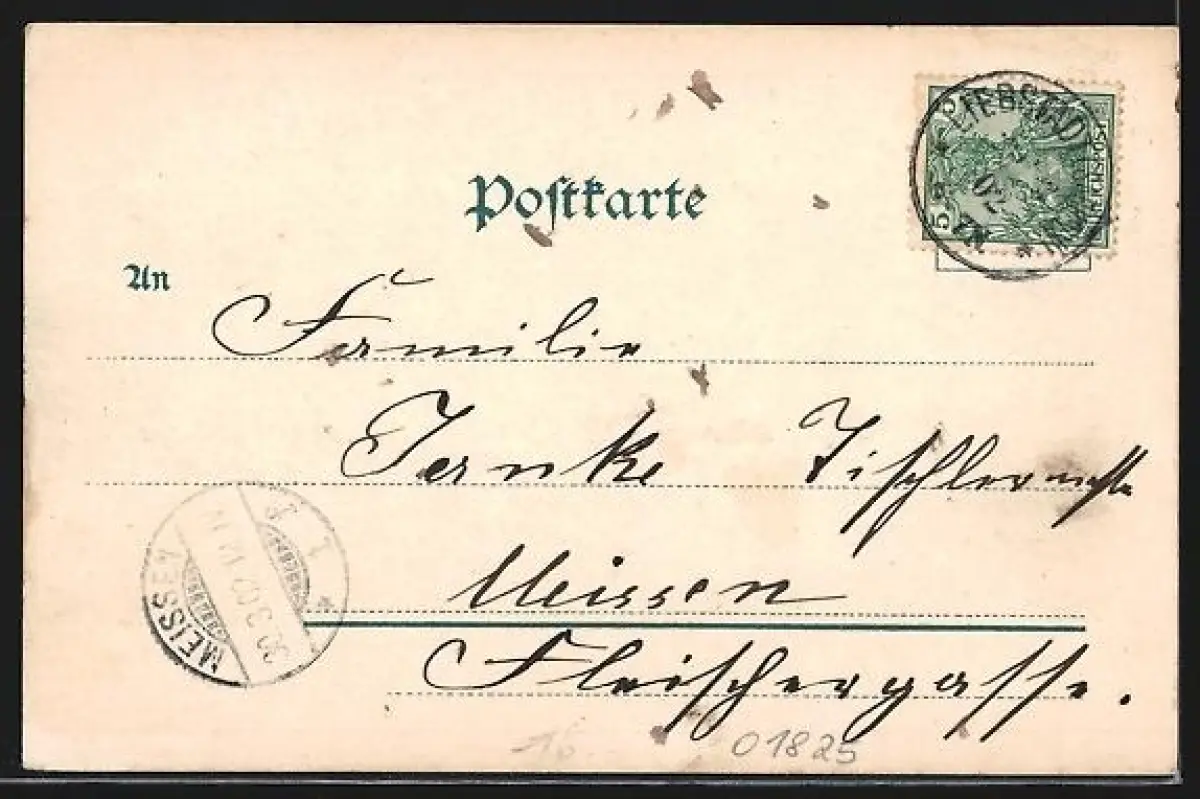 Postkarte
LIEBSTAD
5
REICHSPOST
An
Familie
Janke Tischlermstr
Meissen
Fleischergasse.
MEISSEN
30 3 02
16
01825